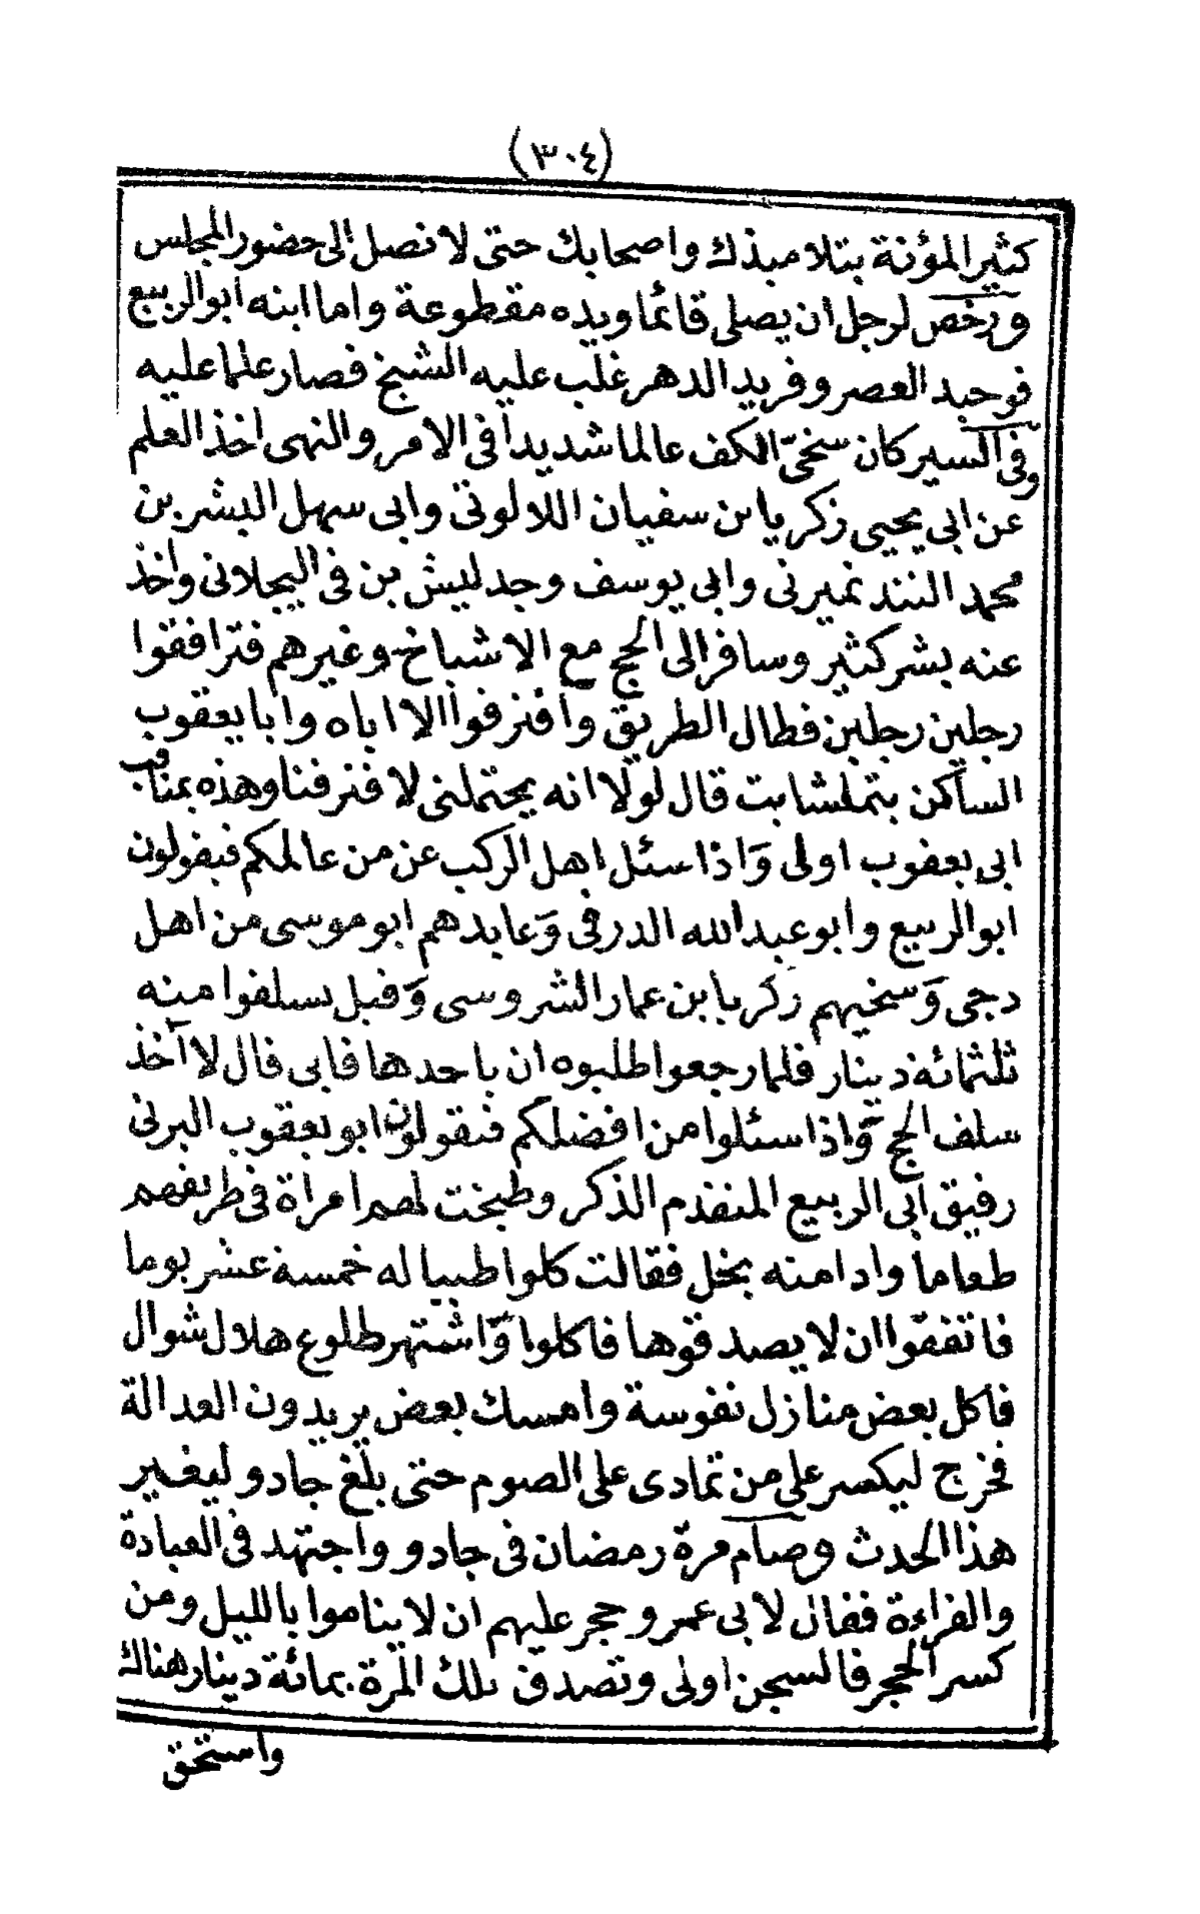 (٣٠٤)
كثير المؤنة بتلاميذك واصحابك حتى لا نصل الى حضور المجلس
ورخص لرجل ان يصلى قائما ويده مقطوعة واما ابنه ابو الربيع
فوحيد العصر وفريد الدهر غلب عليه الشيخ فصار علما عليه
وفى السير كان سخىّ الكف عالما شديدا فى الامر والنهى اخذ العلم
عن ابى يحيى زكريا بن سفيان اللالوتى وابى سهل البشر بن
محمد التندنميرتى وابى يوسف وجدليش بن فى اليجلانى واخذ
عنه بشر كثير وسافر الى الحج مع الاشياخ وغيرهم فترافقوا
رجلين رجلين فطال الطريق وافترقوا الا اياه وابا يعقوب
الساكن بتملشايت قال لولا انه يحتملنى لافترقنا وهذه بمناقب
ابى يعقوب اولى وَاذا سئل اهل الركب عن من عالمكم فيقولون
ابو الربيع وابو عبد الله الدرفى وَعابدهم ابو موسى من اهل
دجى وَسخيهم زكريا بن عمار الشروسى وَقيل يسلفوا منه
ثلثمائة دينار فلما رجعوا طلبوه ان ياخدها فابى قال لا آخذ
سلف الحج وَاذا سئلوا من افضلكم فيقولون ابو يعقوب البرنى
رفيق ابى الربيع المتقدم الذكر وطبخت لهم امراة فى طريقهم
طعاما واداما منه بخل فقالت كلوا طيبا له خمسة عشر يوما
فاتفقوا ان لا يصدقوها فاكلوا وَاشتهر طلوع هلال شوال
فاكل بعض منازل نفوسة وامسك بعض يريدون العدالة
فخرج ليكسر على من تمادى على الصوم حتى بلغ جادو ليغير
هذا الحدث وصام مرة رمضان فى جادو واجتهد فى العبادة
والقراءة فقال لابى عمرو حجر عليهم ان لا يناموا بالليل ومن
كسر الحجر فالسجن اولى وتصدق تلك المرة بمائة دينار هناك
واستحق